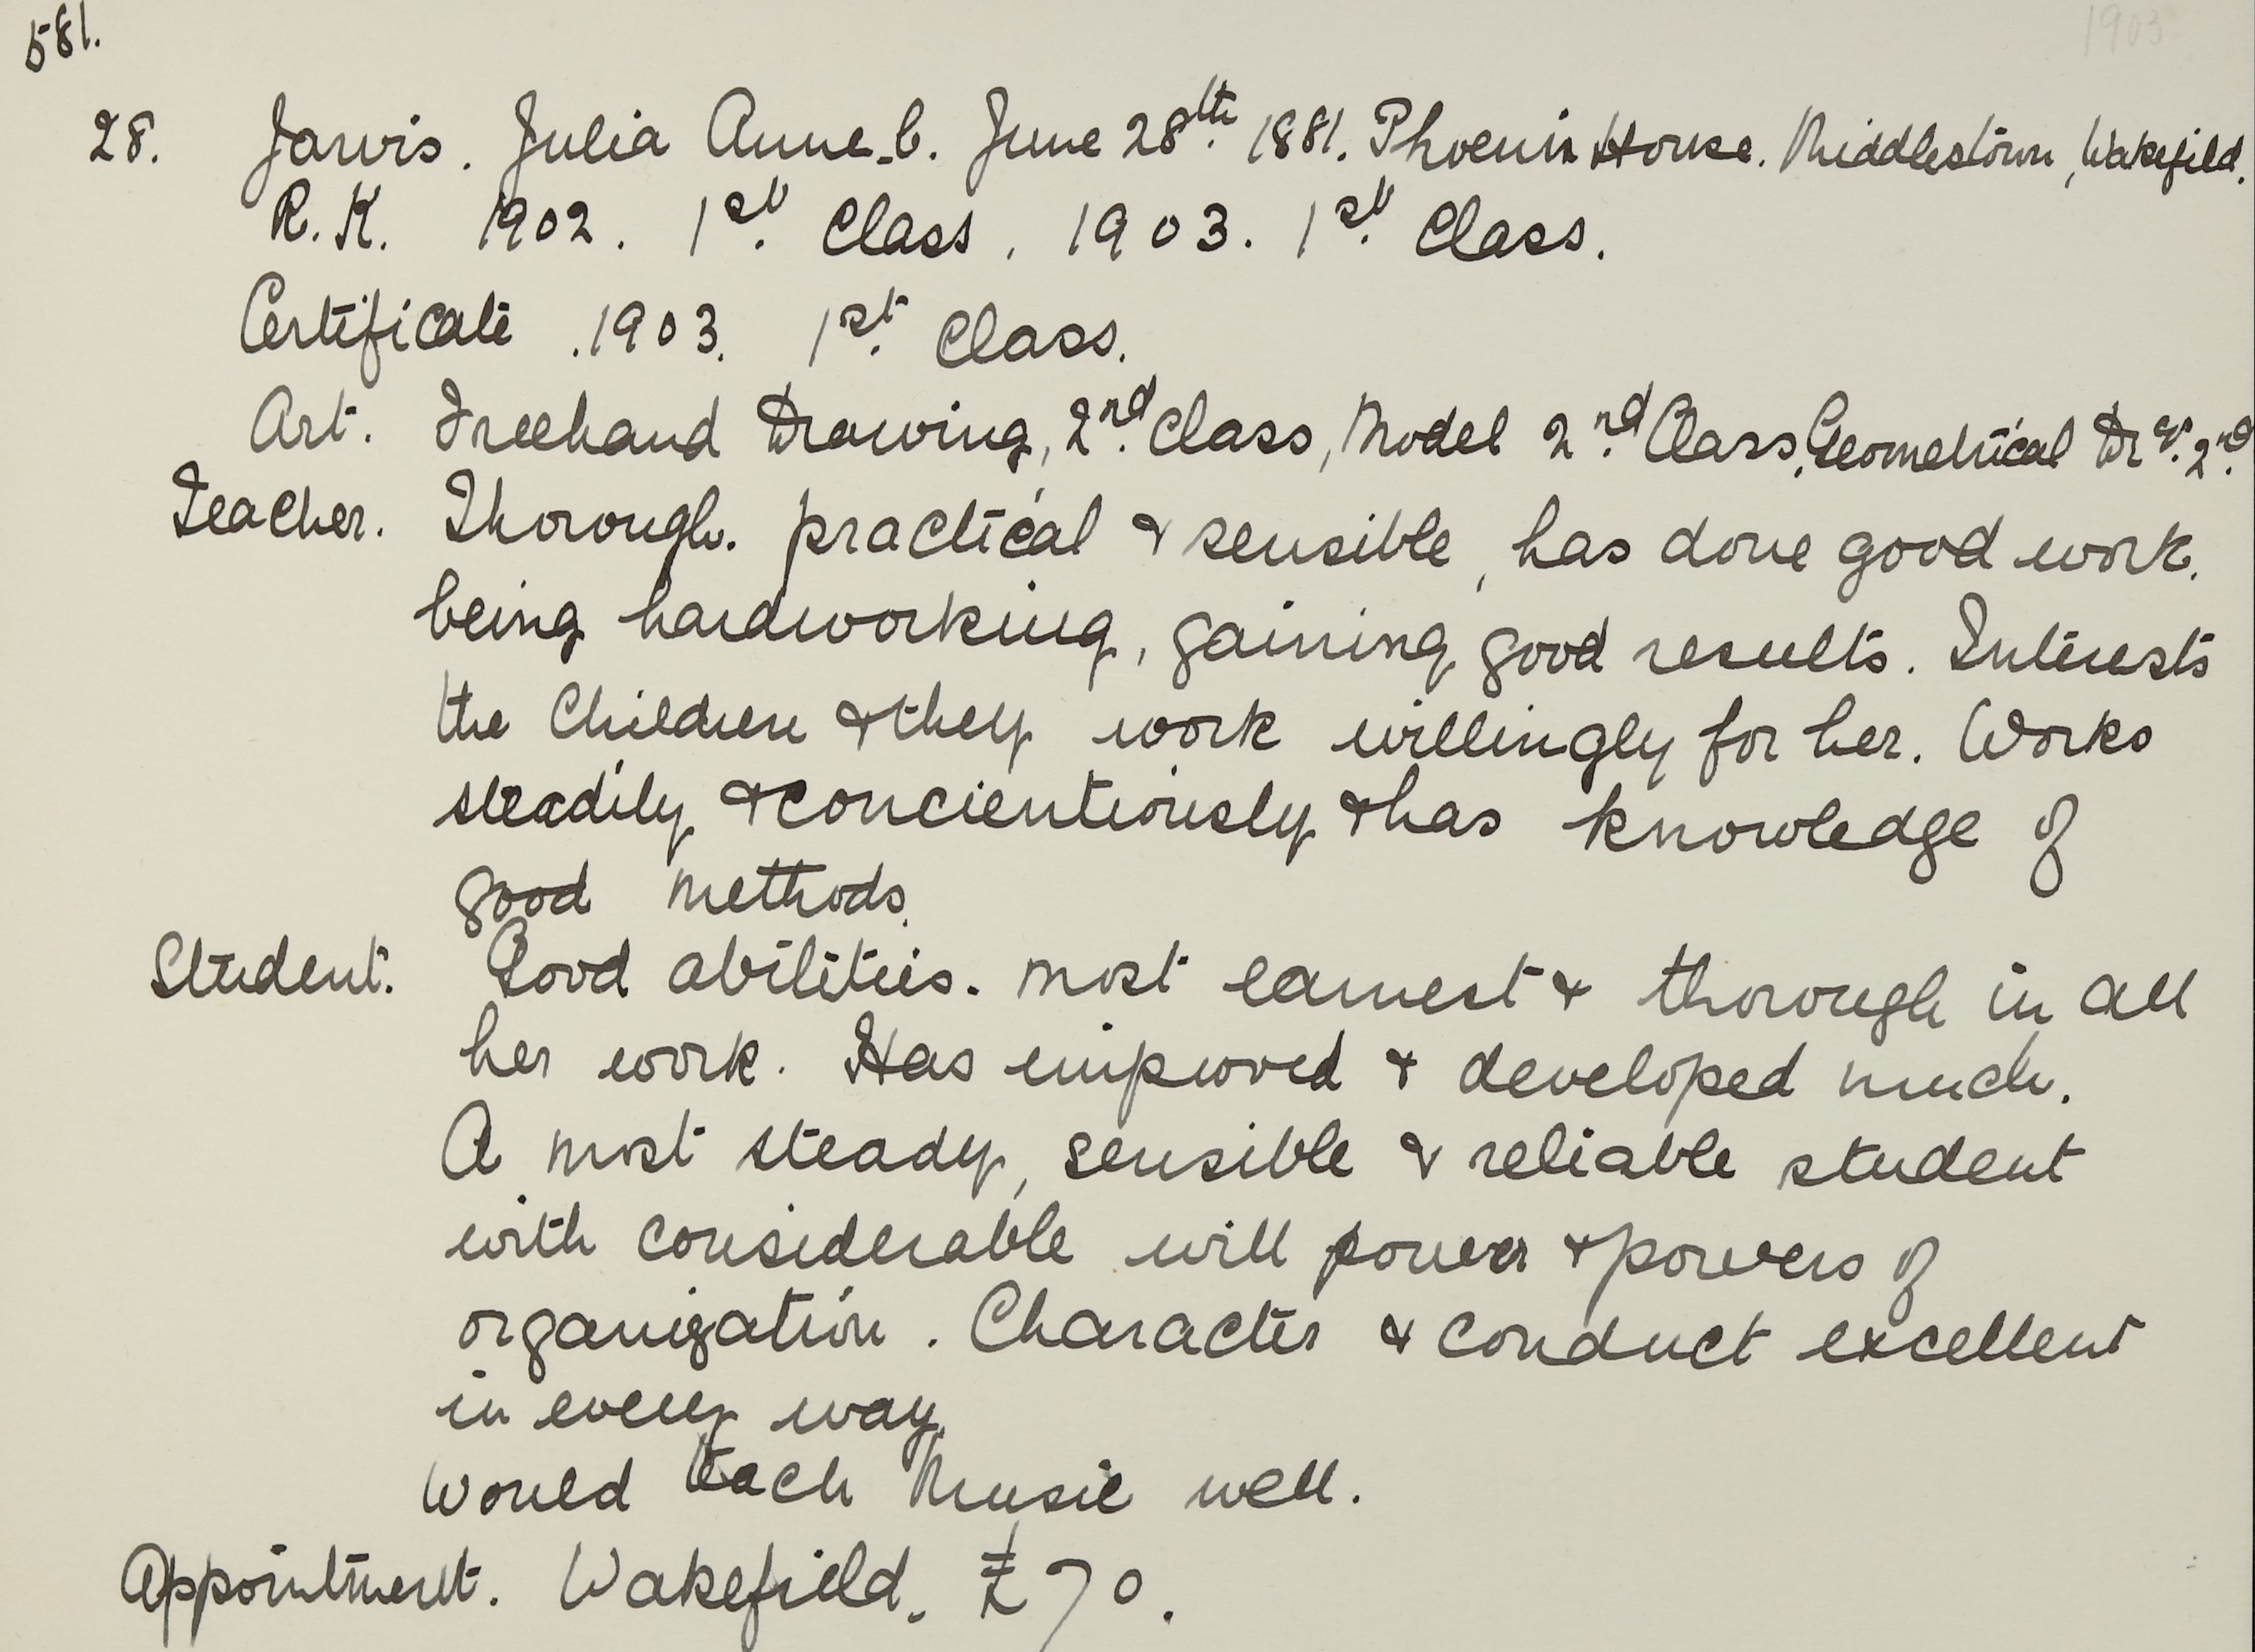 581.
1903
28. Jarvis. Julia Anne. b. June 28th. 1881. Phoenix House. Middlestown, Wakefield.
R.K. 1902. 1st. Class, 1903. 1st. Class.
Certificate .1903. 1st. Class.
Art. Freehand Drawing, 2nd. Class, Model 2nd. Class, Geometrical Drg. 2nd.
Teacher. Thorough. practical & sensible, has done good work.
being hardworking, gaining good results. Interests
the Children & they work willingly for her. Works
steadily & concientiously & has knowledge of
good methods.
Student. Good abilities. most earnest & thorough in all
her work. Has improved & developed much.
A most steady, sensible & reliable student
with considerable will power & powers of
organization. Character & conduct excellent
in every way.
Would teach Music well.
Appointment. Wakefield. £70.